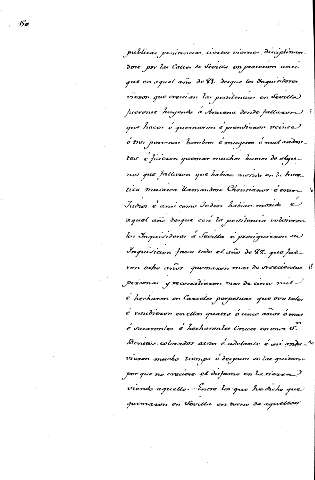 publicas penitencias ciertos viernes disciplinan
dose por las Calles de Sevilla en procesion
que en aquel año de 81. desque los Inquisidores
vieron que crecian las pestilencias en Sevilla
fueronse huyendo á Aracena donde fallaron
que hacer é quemaron é prendieron veinte
é tres personas hombres é mugeres
é ficieron quemar muchos huesos de algu-
nos que fallaron que habian
llamandose Christianos é eran
Judios é ansi como Judios habian morido é
aquel año desque cesó la pestilencia volvieron
los Inquisidores á Sevilla é prosiguieron su
Inquisicion fasta todo el año de 88. que fue-
ron ocho años quemaron mas de setecientas
personas y reconciliaron mas de cinco mil
é hecharon en Carceles perpetuas que ovo tales
é estuvieron en ellas quatro ó cinco años ó mas
é sacaronlos é hecharonles Cruces é unos Sn.
Benitos colorados atras é adelante é ansi andu-
vieron mucho tiempo é despues se los quitaron
porque no creciese el disfame en la tierra
viendo aquello. Entre los que he dicho que
quemaron en Sevilla en torno de aquellos